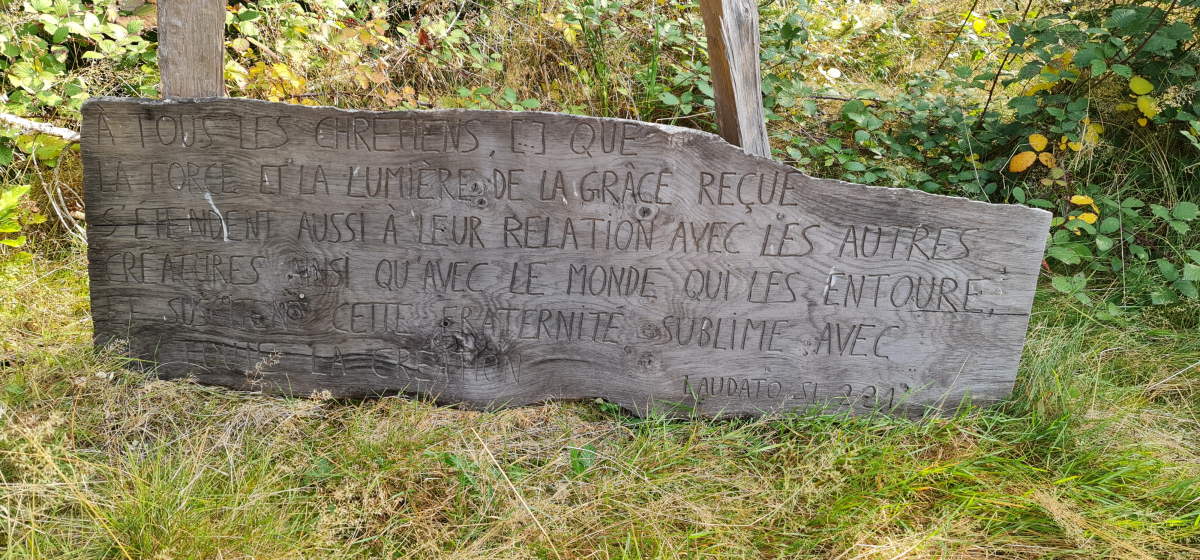 A TOUS LES CHRETIENS, [..] QUE
LA FORCE ET LA LUMIÈRE DE LA GRÂCE REÇUE
S'ÉTENDENT AUSSI À LEUR RELATION AVEC LES AUTRES
CREATURES AINSI QU'AVEC LE MONDE QUI LES ENTOURE,
ET SUSCITENT CETTE FRATERNITÉ SUBLIME AVEC
TOUTE LA CREATION
LAUDATO SI